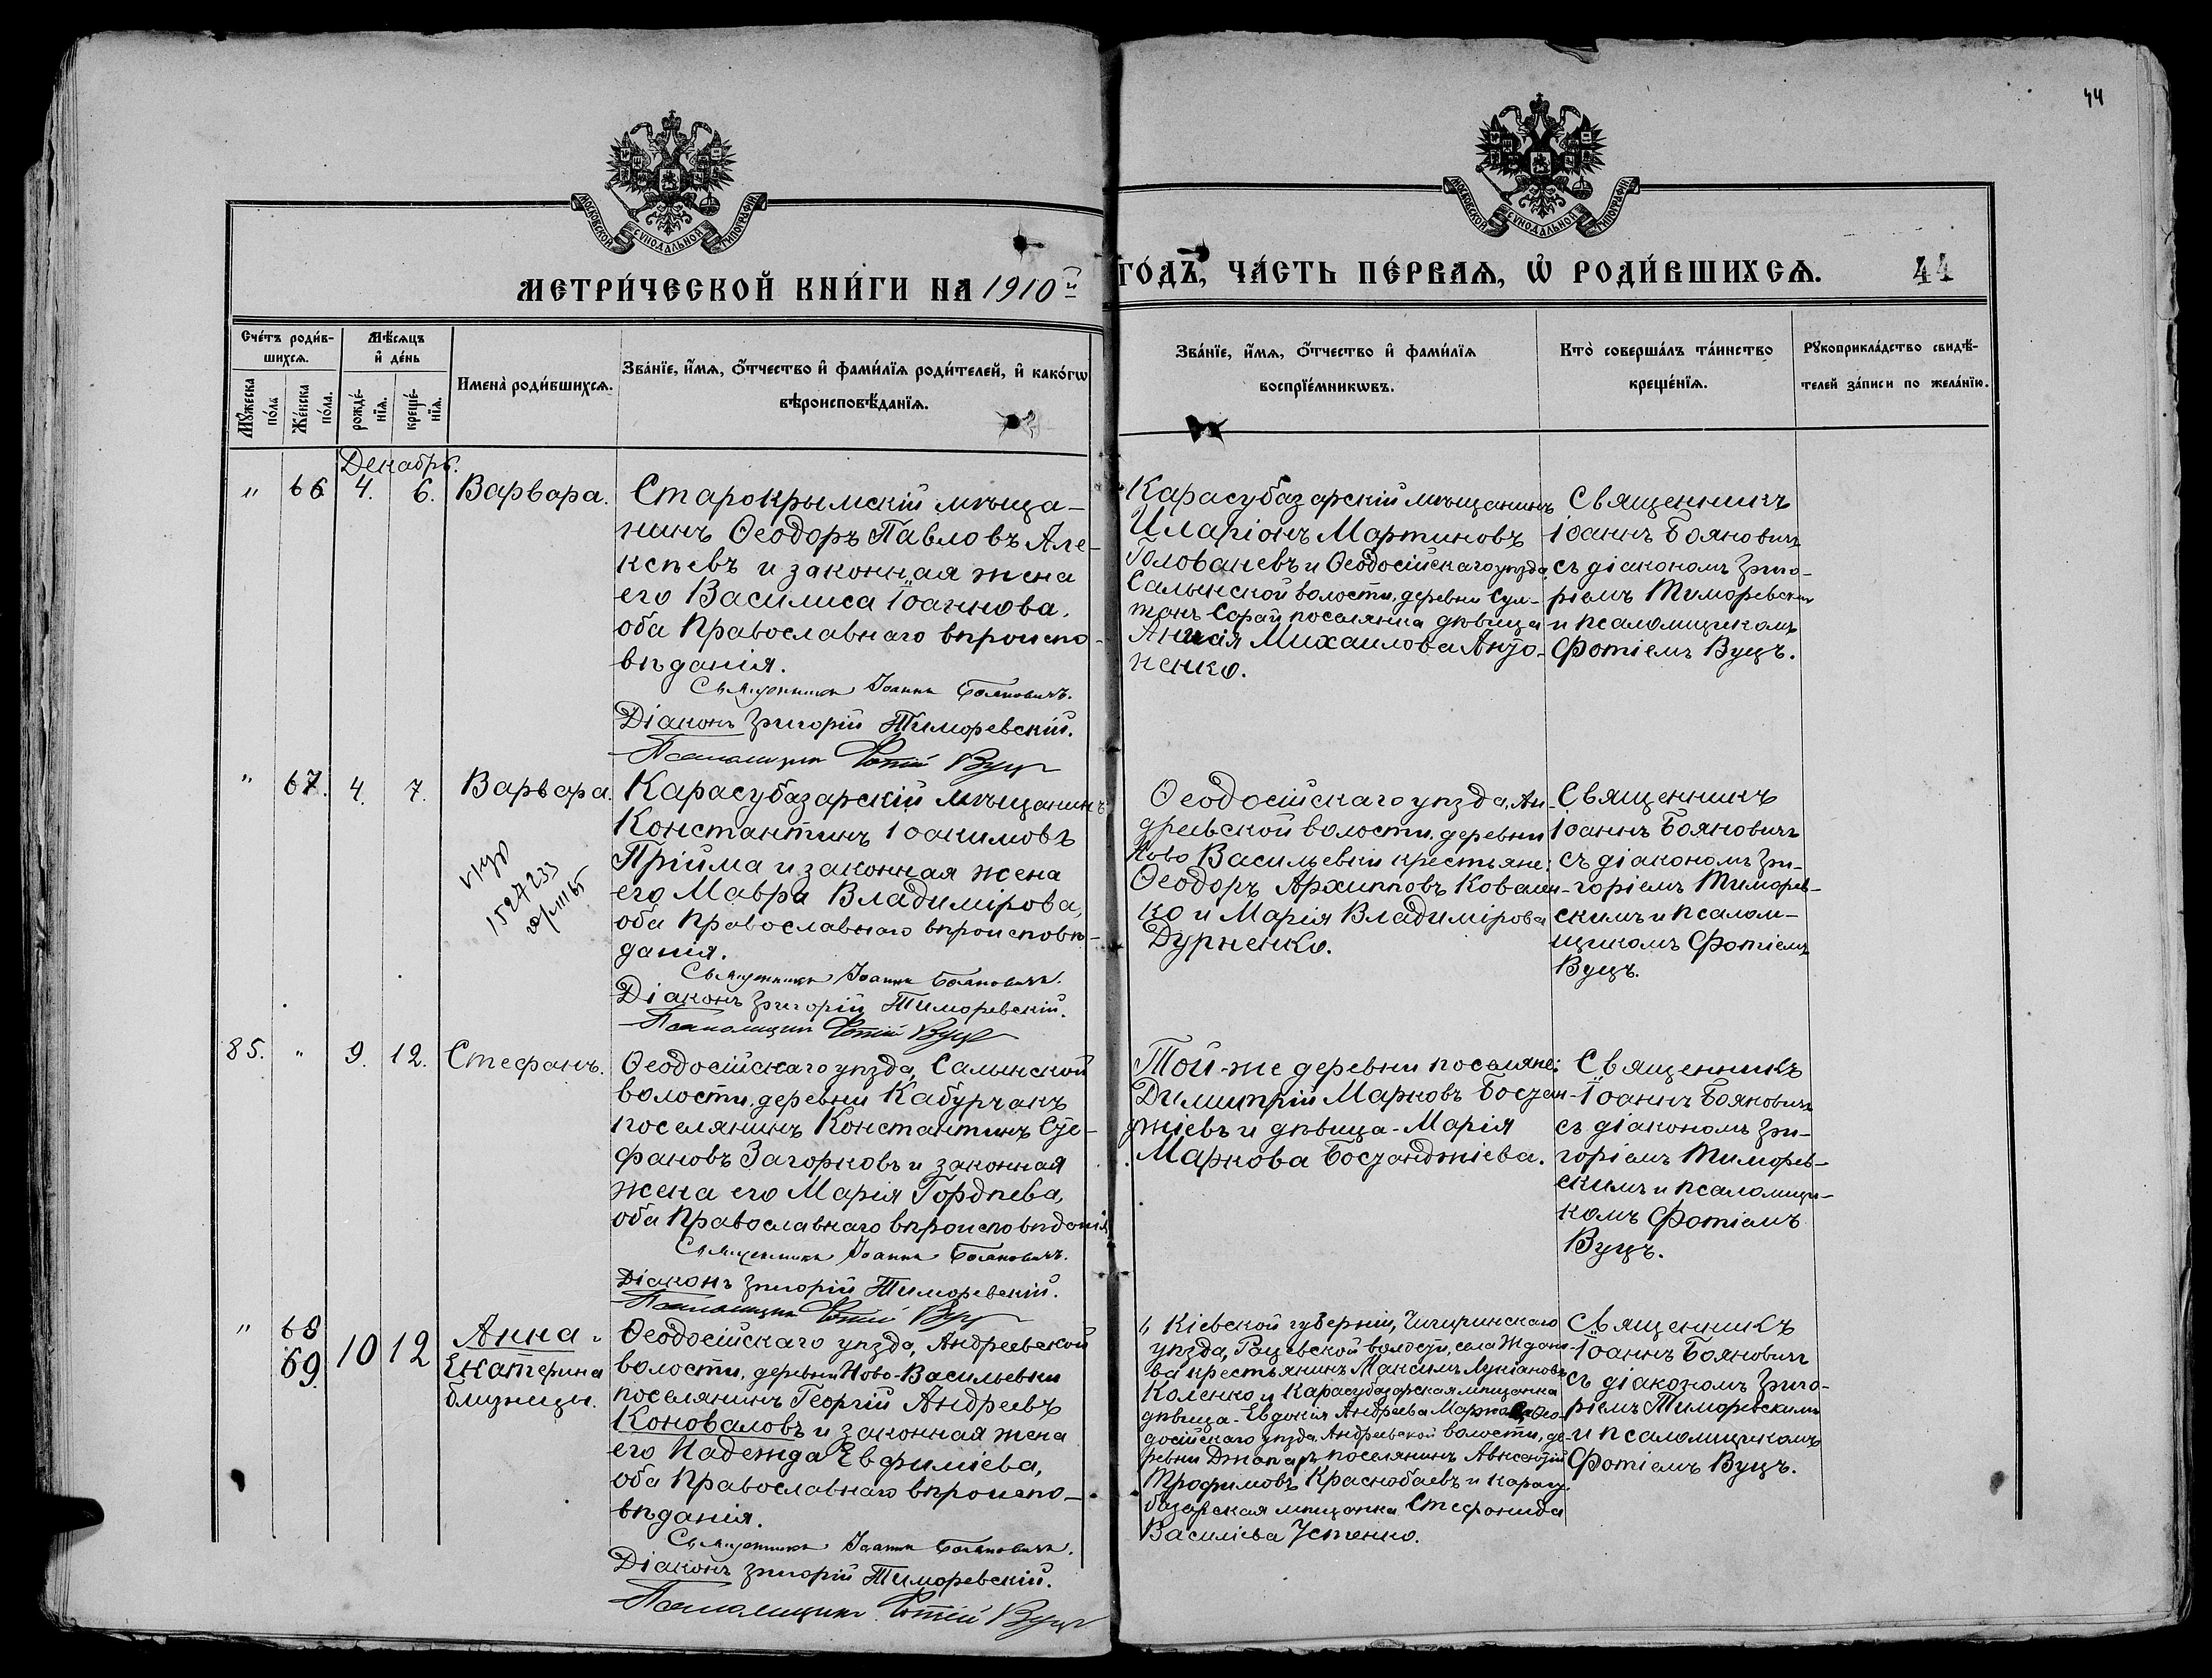 44
МОСКОВСКОЙ СѴНОДАЛЬНОЙ ТИПОГРАФІИ
МОСКОВСКОЙ СѴНОДАЛЬНОЙ ТИПОГРАФІИ
МЕТРИ́ЧЕСКОЙ КНИ́ГИ НА 1910й ГО́ДЪ, ЧА́СТЬ ПЕ́РВАѦ, Ѡ҆ РОДИ́ВШИХСѦ. 44
Сче́тъ роди́в-
шихсѧ.
Мꙋ́жеска по́ла
Же́нска по́ла.
Мѣ́сѧцъ
и҆ де́нь
рожде́-
нїѧ.
креще́-
нїѧ.
Имена̀ роди́вшихсѧ.
Зва́нїе, и҆́мѧ, ѻ҆́тчество и҆ фами́лїѧ роди́телей, и҆ како́гѡ
вѣроисповѣ́данїѧ.
Зва́нїе, и҆́мѧ, ѻ҆́тчество и҆ фами́лїѧ
воспрїе́мникѡвъ.
Кто̀ соверша́лъ та́инство
креще́нїѧ.
Рꙋкоприкла́дство свидѣ́-
телей за́писи по жела́нїю.
Декабрь.
" 66 4. 6. Варвара.
Старокрымскій мѣща-
нинъ Ѳеодоръ Павловъ Але-
ксѣевъ и законная жена
его Василиса Іоаннова,
оба Православнаго вѣроиспо-
вѣданія.
Священникъ Іоаннъ Бояновичъ.
Діаконъ Григорій Тиморевскій.
Псаломщикъ Фотій Вуцъ
Карасубазарскій мѣщанинъ
Иларіонъ Мартиновъ
Голованевъ и Ѳеодосійскаго уѣзда,
Салынской волости, деревни Сул-
танъ Сарай поселянка дѣвица
Михаилова Анто-
ненко.
Священникъ
Іоаннъ Бояновичъ
съ діакономъ Григо-
ріемъ Тиморевскимъ
и псаломщикомъ
Фотіемъ Вуцъ.
" 67. 4. 7. Варвара.
1527233
Карасубазарскій мѣщанинъ
Константинъ Іоакимовъ
Прійма и законная жена
его Мавра Владимірова,
оба Православнаго вѣроисповѣ-
данія.
Священникъ Іоаннъ Бояновичъ.
Діаконъ Григорій Тиморевскій.
Псаломщикъ Фотій Вуцъ
Ѳеодосійскаго уѣзда, Ан-
дреевской волости, деревни
Ново Васильевки крестьяне:
Ѳеодоръ Архипповъ Ковален-
ко и Марія Владимірова
Дурненко.
Священникъ
Іоаннъ Бояновичъ
съ діакономъ Гри-
горіемъ Тиморев-
скимъ и псалом-
щикомъ Фотіемъ
Вуцъ.
85. " 9. 12. Стефанъ.
Ѳеодосійскаго уѣзда, Салынской
волости, деревни Кабурчакъ
поселянинъ Константинъ Сте-
фановъ Загорковъ и законная
жена его Марія Гордѣева,
оба Православнаго вѣроисповѣданія
Священникъ Іоаннъ Бояновичъ.
Діаконъ Григорій Тиморевскій.
Псаломщикъ Фотій Вуцъ
Той-же деревни поселяне:
Димитрій Марковъ Бостан-
джіевъ и дѣвица-Марія
Маркова Бостанджіева.
Священникъ
Іоаннъ Бояновичъ
съ діакономъ Гри-
горіемъ Тиморев-
скимъ и псаломщи-
комъ Фотіемъ
Вуцъ.
" 68 69. 10 12 Анна и
Екатерина
близницы.
Ѳеодосійскаго уѣзда, Андреевской
волости, деревни Ново-Васильевки
поселянинъ Георгій Андреевъ
Коноваловъ и законная жена
его Надежда Евфиміева,
оба Православнаго вѣроиспо-
вѣданія.
Священникъ Іоаннъ Бояновичъ.
Діаконъ Григорій Тиморевскій.
Псаломщикъ Фотій Вуцъ
Кіевской губерніи, Чигиринскаго
уѣзда, Рацевской волости, села Ждани-
ва крестьянинъ Максимъ Лукіановъ
Коленко и Карасубазарская мѣщанка
дѣвица-Евдокія Андреева Ѳео-
досійскаго уѣзда, Андреевской волости, де-
ревни Джапаръ поселянинъ Авксентій
Трофимовъ Краснобаевъ и Карасу-
базарская мѣщанка Стефанида
Василіева Устенко.
Священникъ
Іоаннъ Бояновичъ
съ діакономъ Григо-
ріемъ Тиморевскимъ
и псаломщикомъ
Фотіемъ Вуцъ.